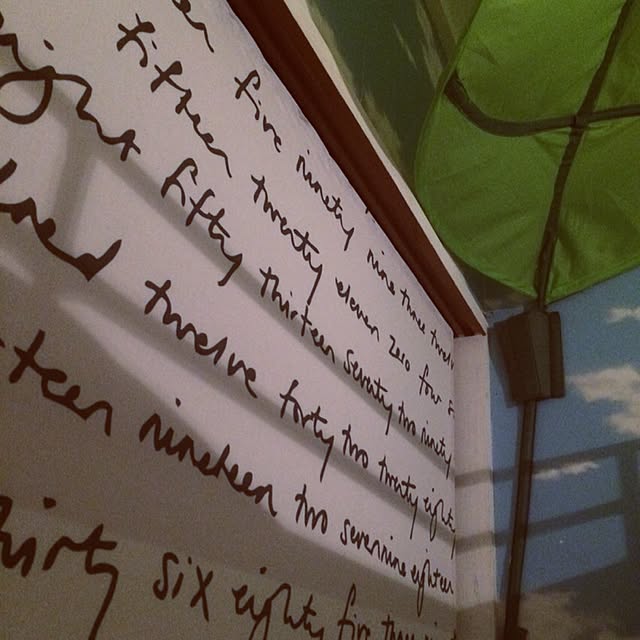 five ninety nine three
fifteen twenty eleven zero four
eight fifty thirteen seventy two ninety
twelve forty two twenty eight
teen nineteen two seven nine eighteen
hirty six eighty five three